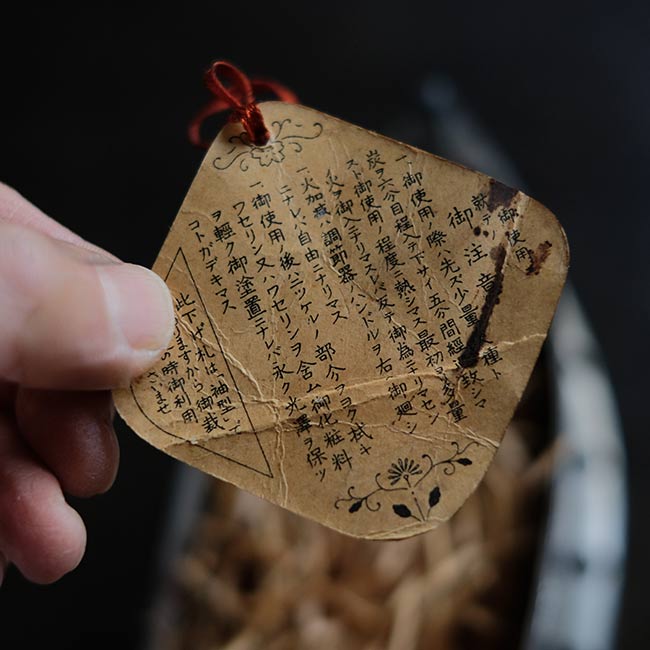 御使用
就テノ
御注意
一、御使用ノ際ハ先ズ少量ノ
炭ヲ六分目程入テ下サイ五分間經
スト御使用ノ程度ニ熱シマス最初ヨリ多量
火ヲ御入ニナリマスレバ反テ御為ニナリマセン
一、火加減調節器ハハンドルヲ右ニ御廻シ
ニナレバ自由ニナリマス
一、御使用ノ後ニツケルノ部分ヲヨク拭キ
ワセリン又ハワセリンヲ含ム御化粧料
ヲ輕ク御塗置ニナレバ永ク光澤ヲ保ツ
コトガデキマス
此下ゲ札は「袖型」に
りますから御裁
の時御利用
さいませ